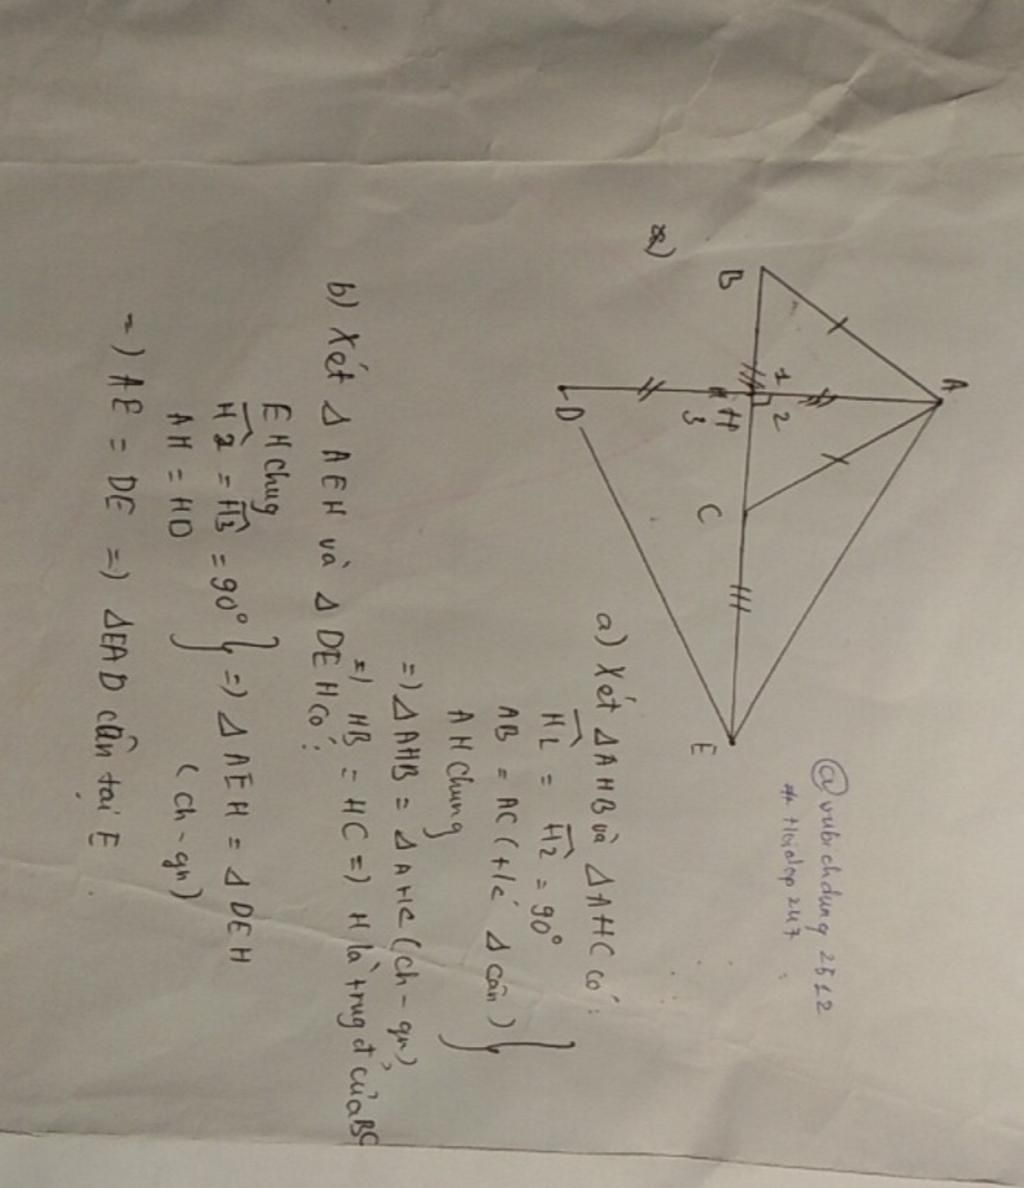 @vubichdung 2512
Hoidap 247
a)
A
B
1
2
H
3
C
D
E
a) Xét Δ AHB và Δ AHC có:
H1 = H2 = 90°
AB = AC (t/c Δ cân)
AH chung
=) Δ AHB = Δ AHC (ch - gn)
=) HB = HC =) H là trug đ của BC
b) Xét Δ AEH và Δ DEH có:
EH chug
H2 = H3 = 90° } =) Δ AEH = Δ DEH
AH = HD (ch - gn)
=) AE = DE =) ΔEAD cân tại E.